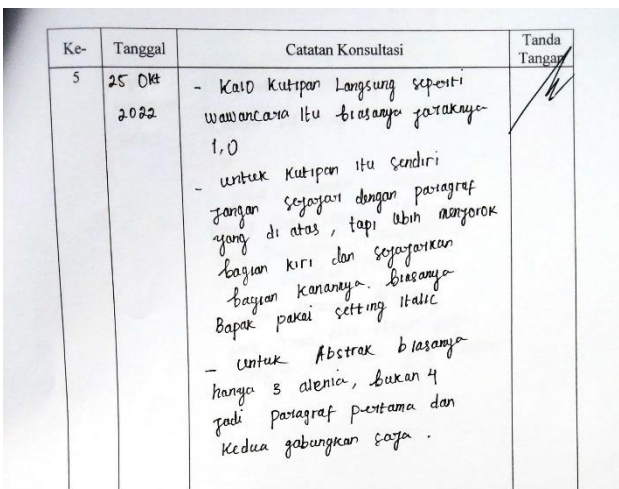 Ke- Tanggal Catatan Konsultasi Tanda Tangan
5 25 Okt 2022
- Kalo Kutipan Langsung seperti
wawancara itu biasanya jaraknya
1,0
- untuk Kutipan itu sendiri
jangan sejajar dengan paragraf
yang di atas, tapi lebih menjorok
bagian kiri dan sejajarkan
bagian kanannya. biasanya
Bapak pakai setting Italic
- untuk Abstrak biasanya
hanya 3 alenia, bukan 4
jadi paragraf pertama dan
Kedua gabungkan saja.